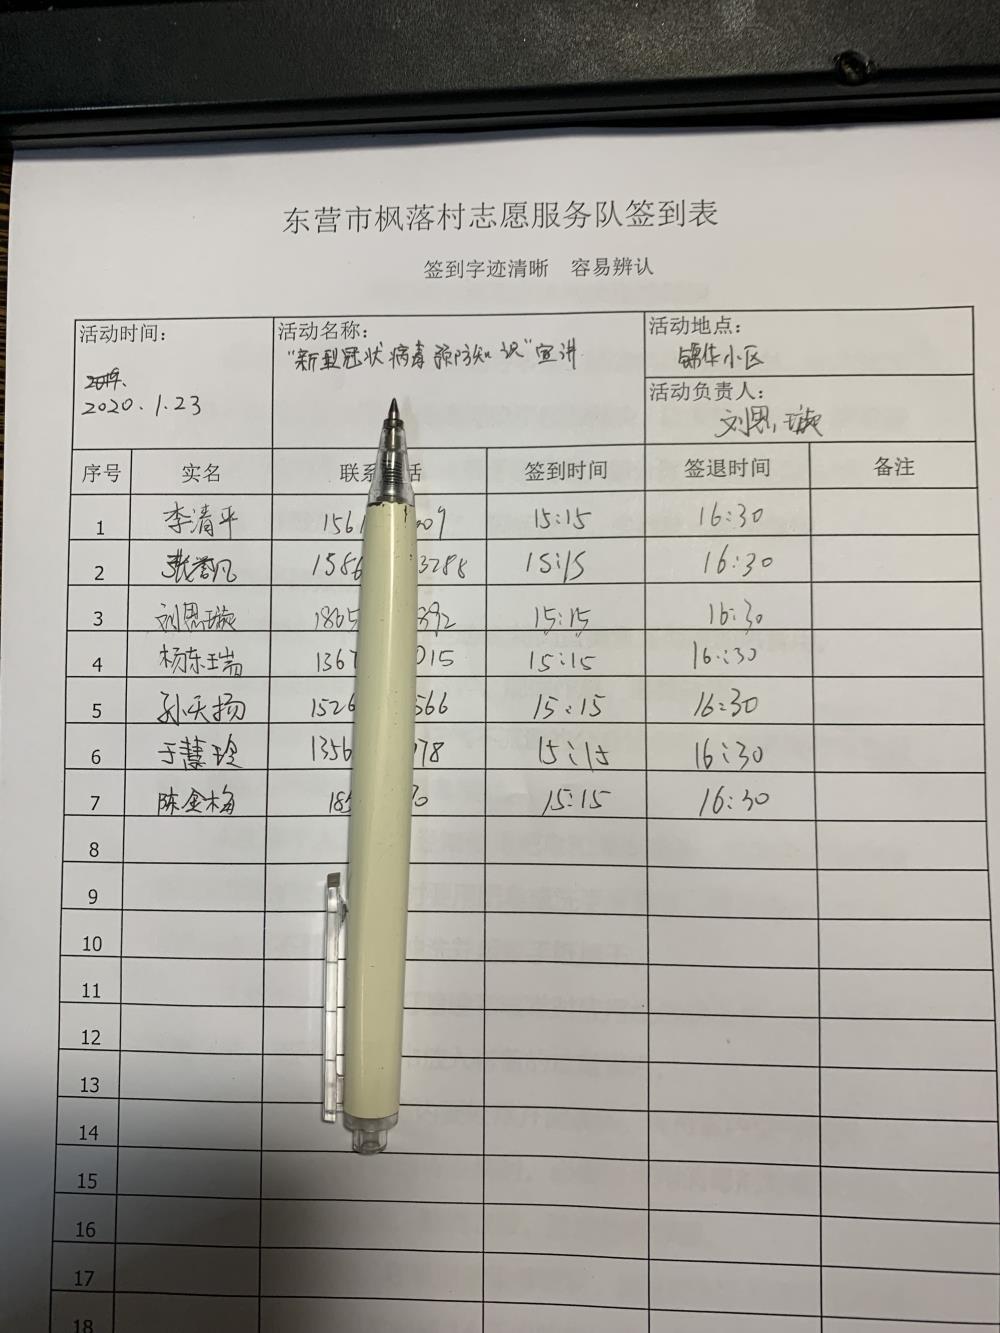 东营市枫落村志愿服务队签到表
签到字迹清晰 容易辨认
活动时间:
2019.
2020.1.23
活动名称:
"新型冠状病毒预防知识"宣讲
活动地点:
锦华小区
活动负责人:
刘恩璇
序号 实名 联系 话 签到时间 签退时间 备注
1 李清平 1561 009 15:15 16:30
2 张誉凡 1586 3288 15:15 16:30
3 刘恩璇 1865 392 15:15 16:30
4 杨东瑞 1367 015 15:15 16:30
5 孙天扬 1526 566 15:15 16:30
6 于慧玲 1356 78 15:15 16:30
7 陈金梅 18 0 15:15 16:30
8
9
10
11
12
13
14
15
16
17
18